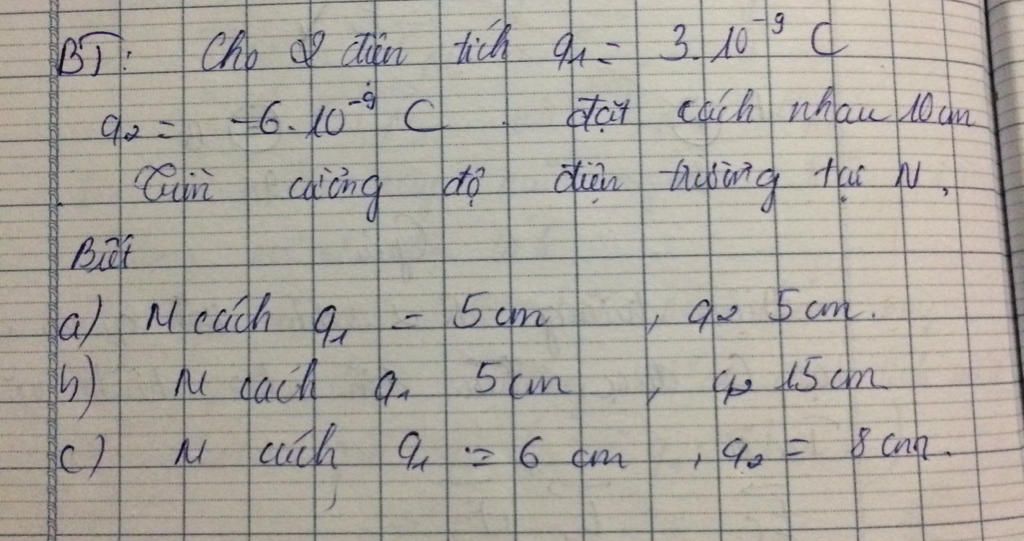 BT: Cho 2 điện tích q₁ = 3.10⁻⁹ C
q₂ = -6.10⁻⁹ C. đặt cách nhau 10cm
Tìm cường độ điện trường tại N,
Biết
a) N cách q₁ = 5cm, q₂ 5cm.
b) N cách q₁ 5cm, q₂ 15cm
c) N cách q₁ = 6 cm, q₂ = 8cm.